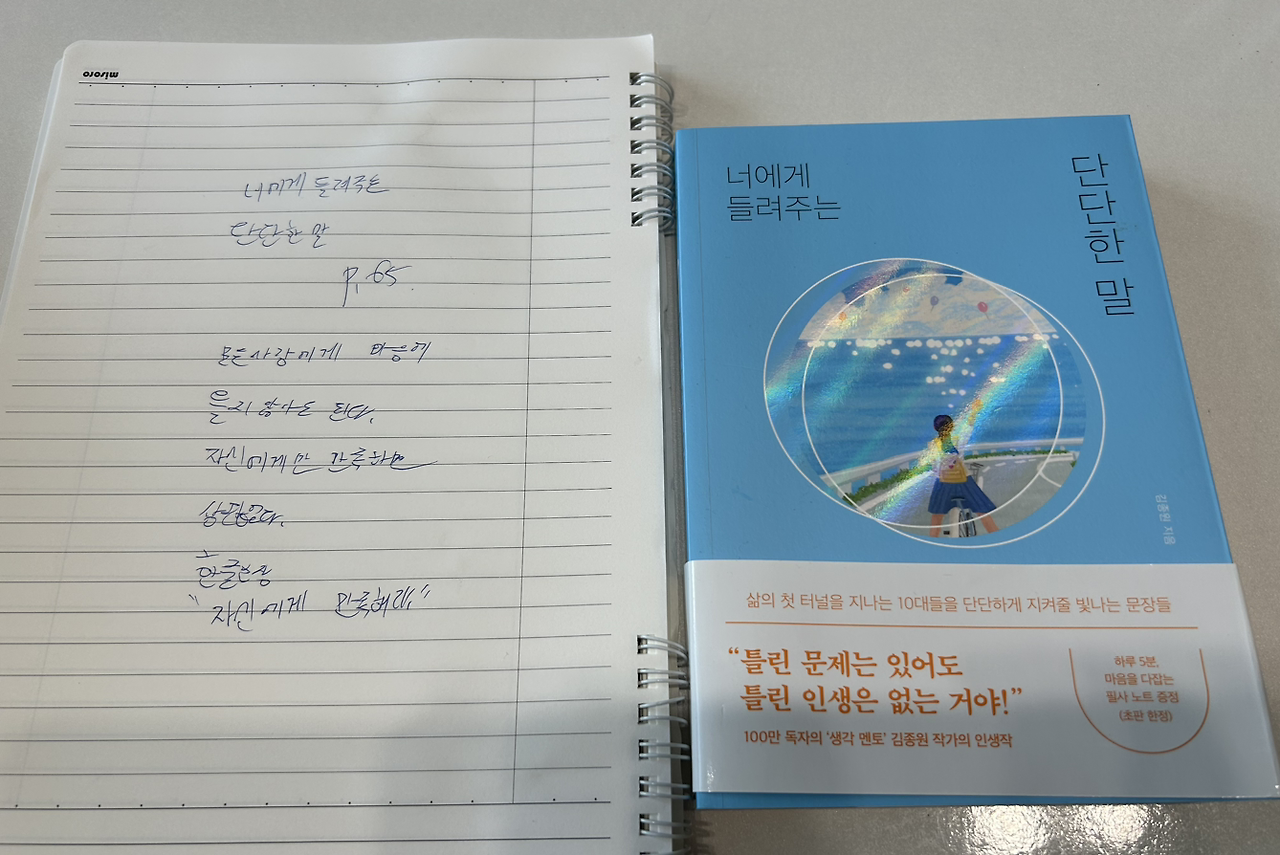 misoro
너에게 들려주는
단단한 말
P. 65
모든사람에게 마음에
들지 않아도 된다.
자신에게만 만족하면
상관없다.
"자신에게 만족해라."
너에게
들려주는
단단한 말
김종원 지음
삶의 첫 터널을 지나는 10대들을 단단하게 지켜줄 빛나는 문장들
“틀린 문제는 있어도
틀린 인생은 없는 거야!”
100만 독자의 ‘생각 멘토’ 김종원 작가의 인생작
하루 5분,
마음을 다잡는
필사 노트 증정
(초판 한정)